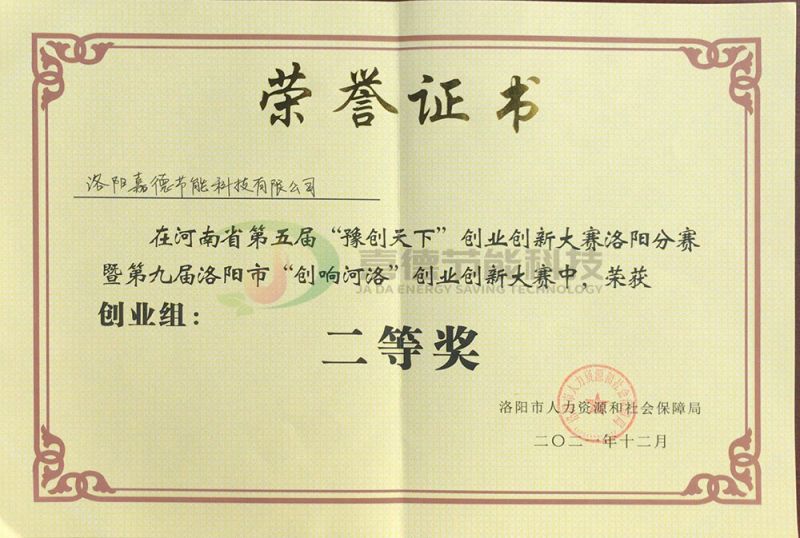 荣誉证书
洛阳嘉德节能科技有限公司
在河南省第五届“豫创天下”创业创新大赛洛阳分赛
暨第九届洛阳市“创响河洛”创业创新大赛中，荣获
嘉德节能科技
JADA ENERGY SAVING TECHNOLOGY
创业组：
二等奖
洛阳市人力资源和社会保障局
二〇二一年十二月
洛阳市人力资源和社会保障局